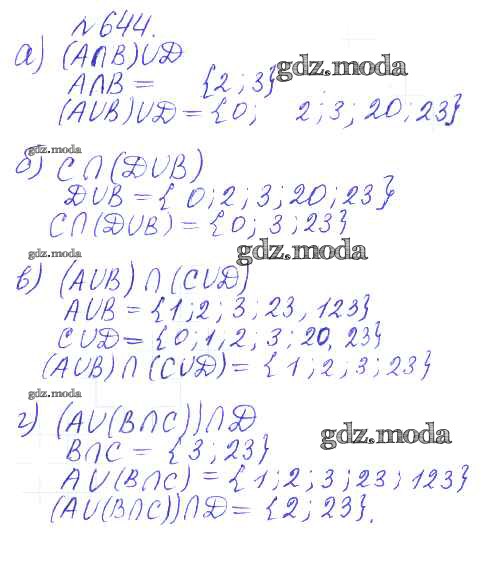 №644.
а) (A∩B)∪D
A∩B = {2; 3}
gdz.moda
(A∪B)∪D = {0; 2; 3; 20; 23}
gdz.moda
б) C∩(D∪B)
D∪B = { 0; 2; 3; 20; 23}
C∩(D∪B) = {0; 3; 23}
gdz.moda
gdz.moda
в) (A∪B) ∩ (C∪D)
A∪B = {1; 2; 3; 23, 123}
C∪D = {0; 1, 2; 3; 20, 23}
(A∪B) ∩ (C∪D) = { 1; 2; 3; 23}
gdz.moda
г) (A∪(B∩C))∩D
gdz.moda
B∩C = {3; 23}
A∪(B∩C) = {1; 2; 3; 23; 123}
(A∪(B∩C))∩D = {2; 23}.